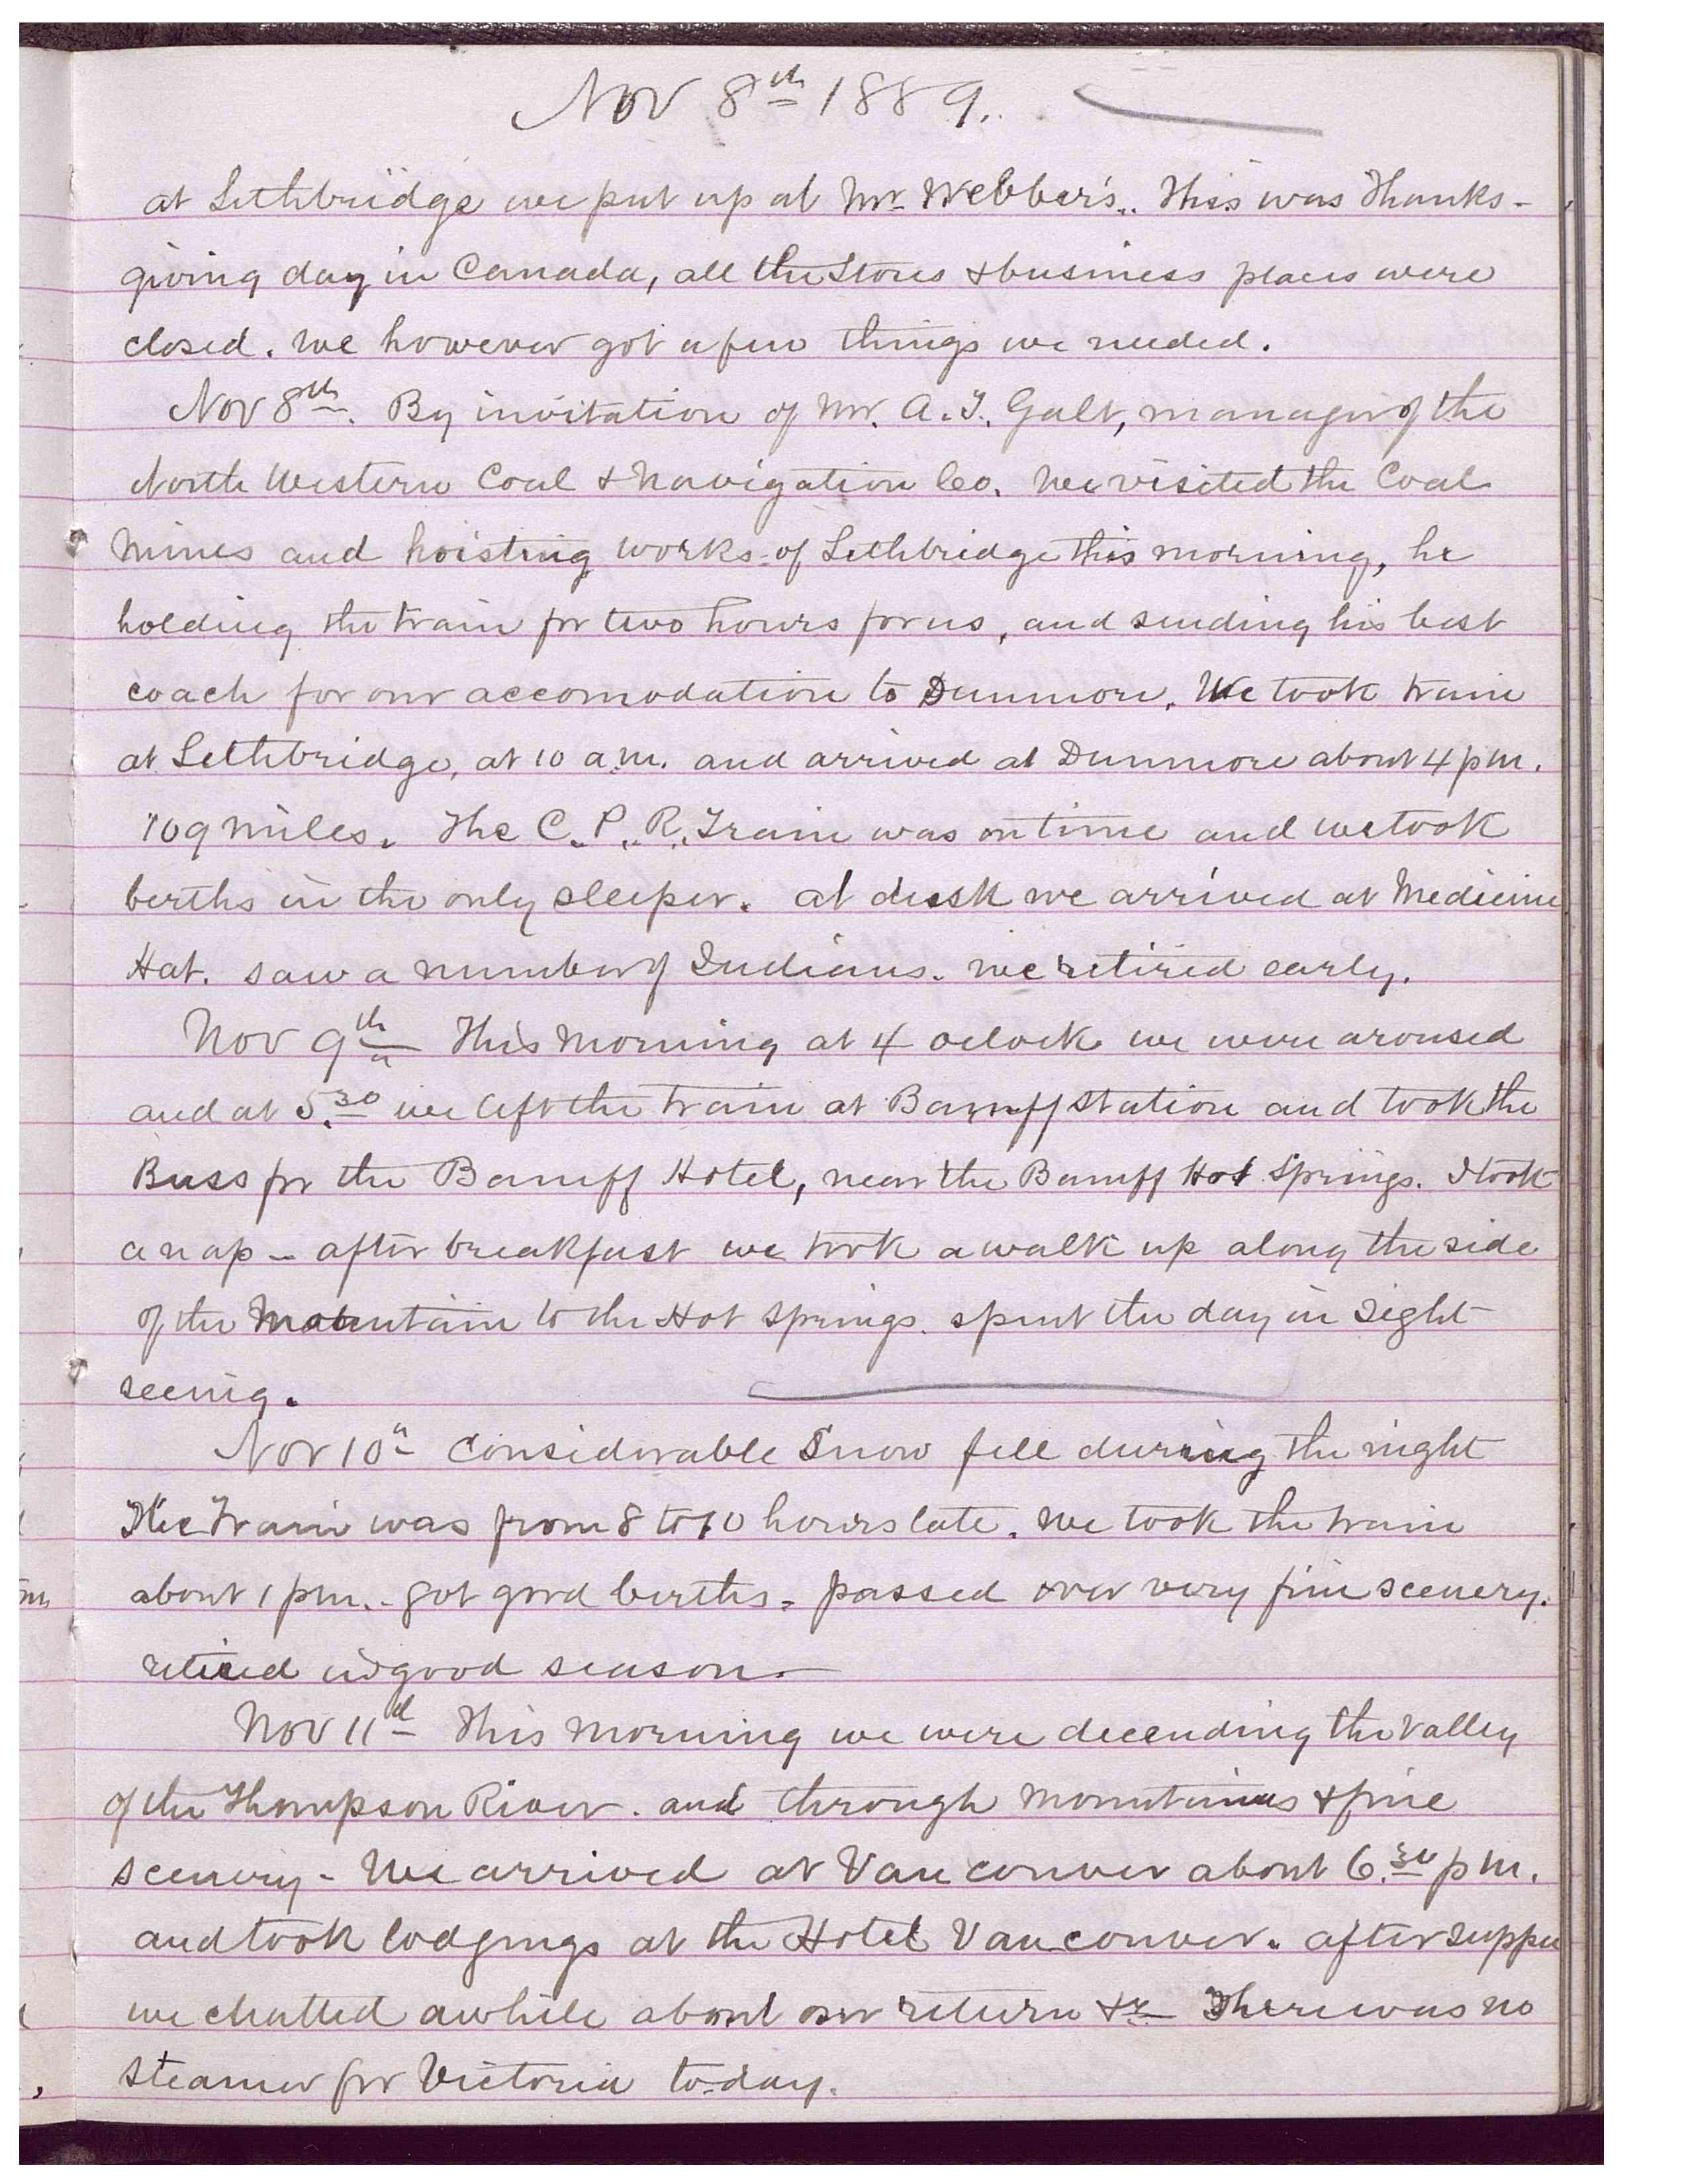 Nov 8th 1889.
at Lethbridge we put up at Mr Webber's. This was Thanks-
giving day in Canada, all the Stores & business places were
closed. We however got a few things we needed.
Nov 8th. By invitation of Mr. A. T. Galt, manager of the
North Western Coal & Navigation Co. We visited the Coal
Mines and hoisting works of Lethbridge this morning, he
holding the train for two hours for us, and sending his best
coach for our accomodation to Dunmore. We took train
at Lethbridge, at 10 a.m. and arrived at Dunmore about 4 pm.
109 miles. The C. P. R. Train was on time and we took
berths in the only sleeper. at dusk we arrived at Medicine
Hat. saw a number of Indians. we retired early.
Nov 9th This Morning at 4 oclock we were aroused
and at 5.30 we left the train at Bamff station and took the
Buss for the Bamff Hotel, near the Bamff Hot Springs. I took
a nap - after breakfast we took a walk up along the side
of the Mountain to the Hot springs. spent the day in sight
seeing.
Nov 10th Considerable Snow fell during the night
The Train was from 8 to 10 hours late. We took the train
about 1 pm. - got good berths - passed over very fine scenery.
retired in good season.
Nov 11th This morning we were decending the Valley
of the Thompson River. and through Mountains & fine
scenery - We arrived at Vancouver about 6.30 pm.
and took lodgings at the Hotel Vancouver. after supper
we chatted awhile about our return &c There was no
steamer for Victoria to-day.